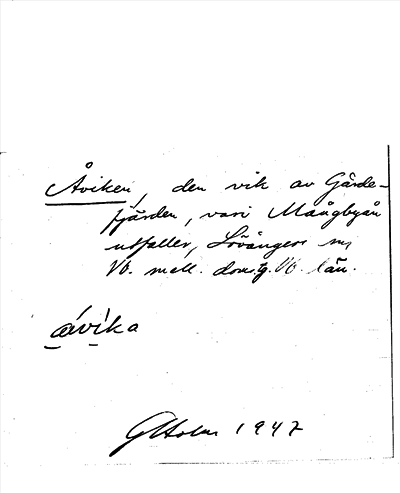 Åviken, den vik av Gärde-
fjärden, vari Mångbyån
utfaller, Lövångers sn,
Vb. mell. doms. Vb. län.
ávíka
Holm 1947